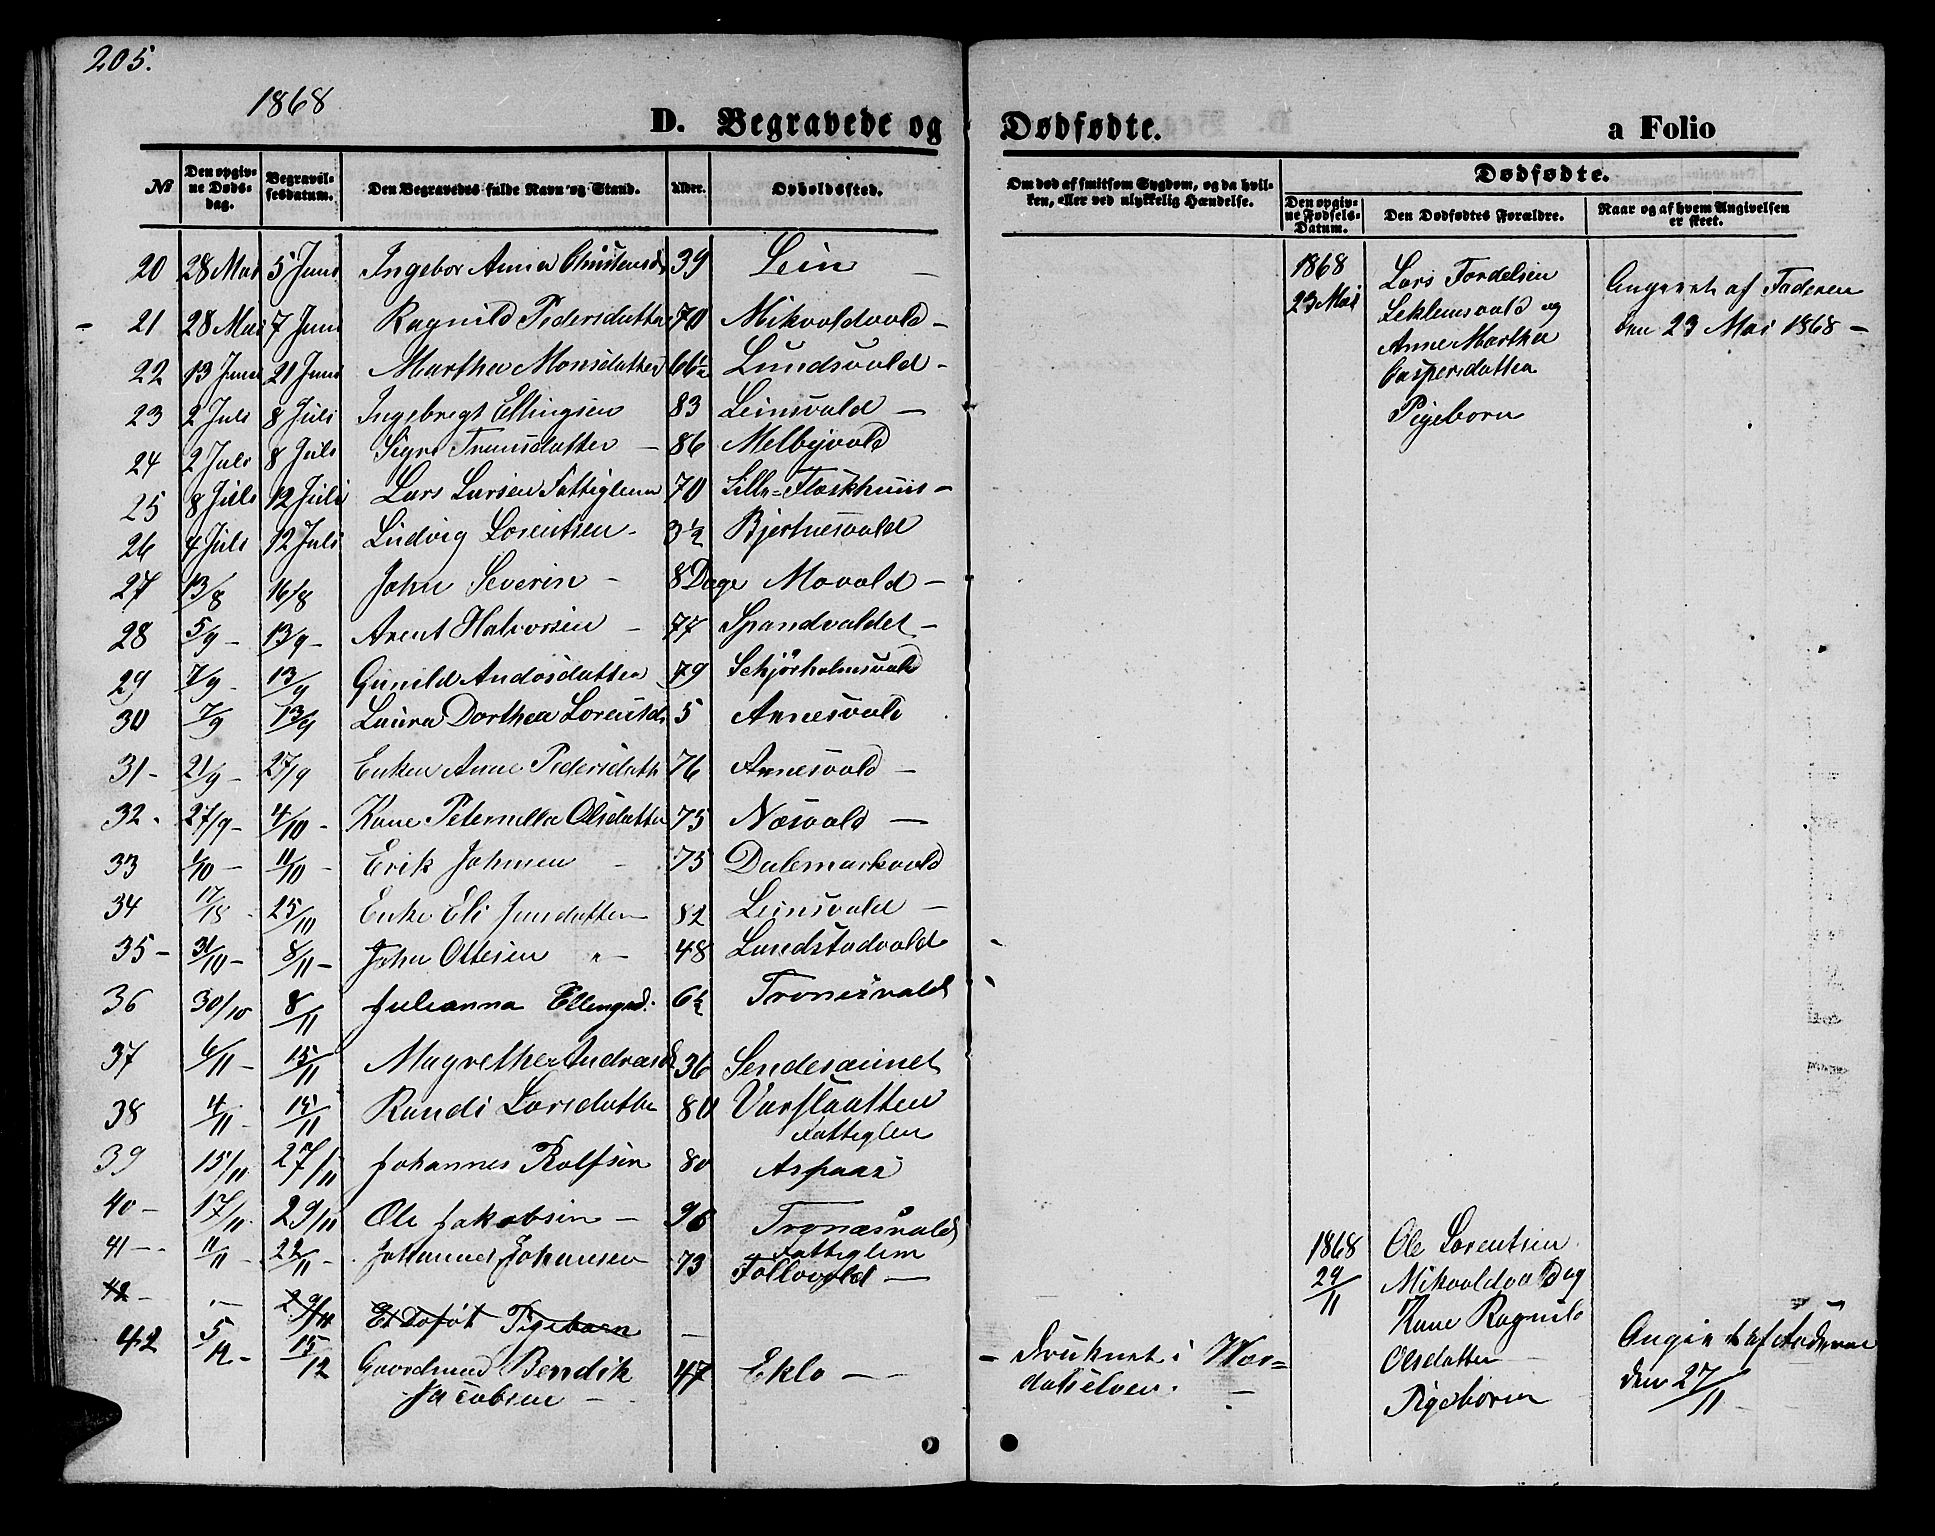 205.
1868
D. Begravede og Dødfødte. a Folio
№ Den opgivne Dødsdag. Begravelsesdatum. Den Begravedes fulde Navn og Stand. Alder. Opholdssted.
Om død af smitsom Sygdom, og da hvilken, eller ved ulykkelig Hændelse.
Dødfødte.
Den opgivne Fødsels-Datum. Den Dødfødtes Forældre. Naar og af hvem Angivelsen er skeet.
20 28 Mai 5 Juni Ingebor Anna Christensd 39 Lein –
21 28 Mai 7 Juni Ragnild Pedersdatter 70 Mikvoldvald –
22 13 Juni 21 Juni Martha Monsdatter 66½ Lundsvald –
23 2 Juli 8 Juli Ingebregt Ellingsen 83 Leinsvald –
24 2 Juli 8 Juli Sigri Trondsdatter – 86 Melbyvald
25 8 Juli 12 Juli Lars Larsen Fattiglem 70 Lille=Floskhuus –
26 4 Juli 12 Juli Ludvig Lorentsen – 3½ Bjertnesvald
27 13/8 16/8 John Severin – 8 Dage Movald –
28 5/9 – 13/9 – Arent Halvorsen – 77 Spandvaldet –
29 7/9 – 13/9 Gunild Andosdatter 79 Schjørholmsvald
30 7/9 13/9 Laura Dorthea Lorentsd 5 Annesvald
31 – 21/9 – 27/9 Enken Anne Pedersdatte 76 Annesvald –
32 – 27/9 – 4/10 – Kone Peternella Olsdatter 75 Næsvald –
33 1/10 – 11/10 – Erik Johnsen – 75 Dalemarkvald
34 17/18 – 25/10 Enke Eli Jensdatter 82 Leinsvald –
35 – 31/10 – 8/11 – John Ottesen " – 48 Lundstadvald
36 30/10 8/11 Julianna Ellingsd. 6½ Tronesvald
37 6/11 – 15/11 Magrethe Andreasd 36 Sendesaunet
38 4/11 15/11 Randi Larsdatter 80 Varslaatten
Fattiglem
39 15/11 27/11 Johannes Rolfsen 80 Aspaas
40 – 17/11 – 29/11 Ole Jakobsen – 96 Tronæsvald
Fattiglem
41 – 11/11 – 22/11 Johannes Johansen 73 Follovald –
42 – – 29/11 Et Døføt Pigebarn –
42 5/12 – 15/12 Gaardmand Bendik 47 Eklo –
Jacobsen –
– Druknet i Wær=
dalselven. –
1868
23 Mai
Lars Tordelsen
Leklemsvald og
Anne Martha
Caspersdatter
Pigeborn
Angivet af Faderen
den 23 Mai 1868 –
1868
29/11
Ole Lorentsen
Mikvoldvald og
Kone Ragnild
Olsdatter –
Pigeboren
Angivet af Faderen
den 27/11 –